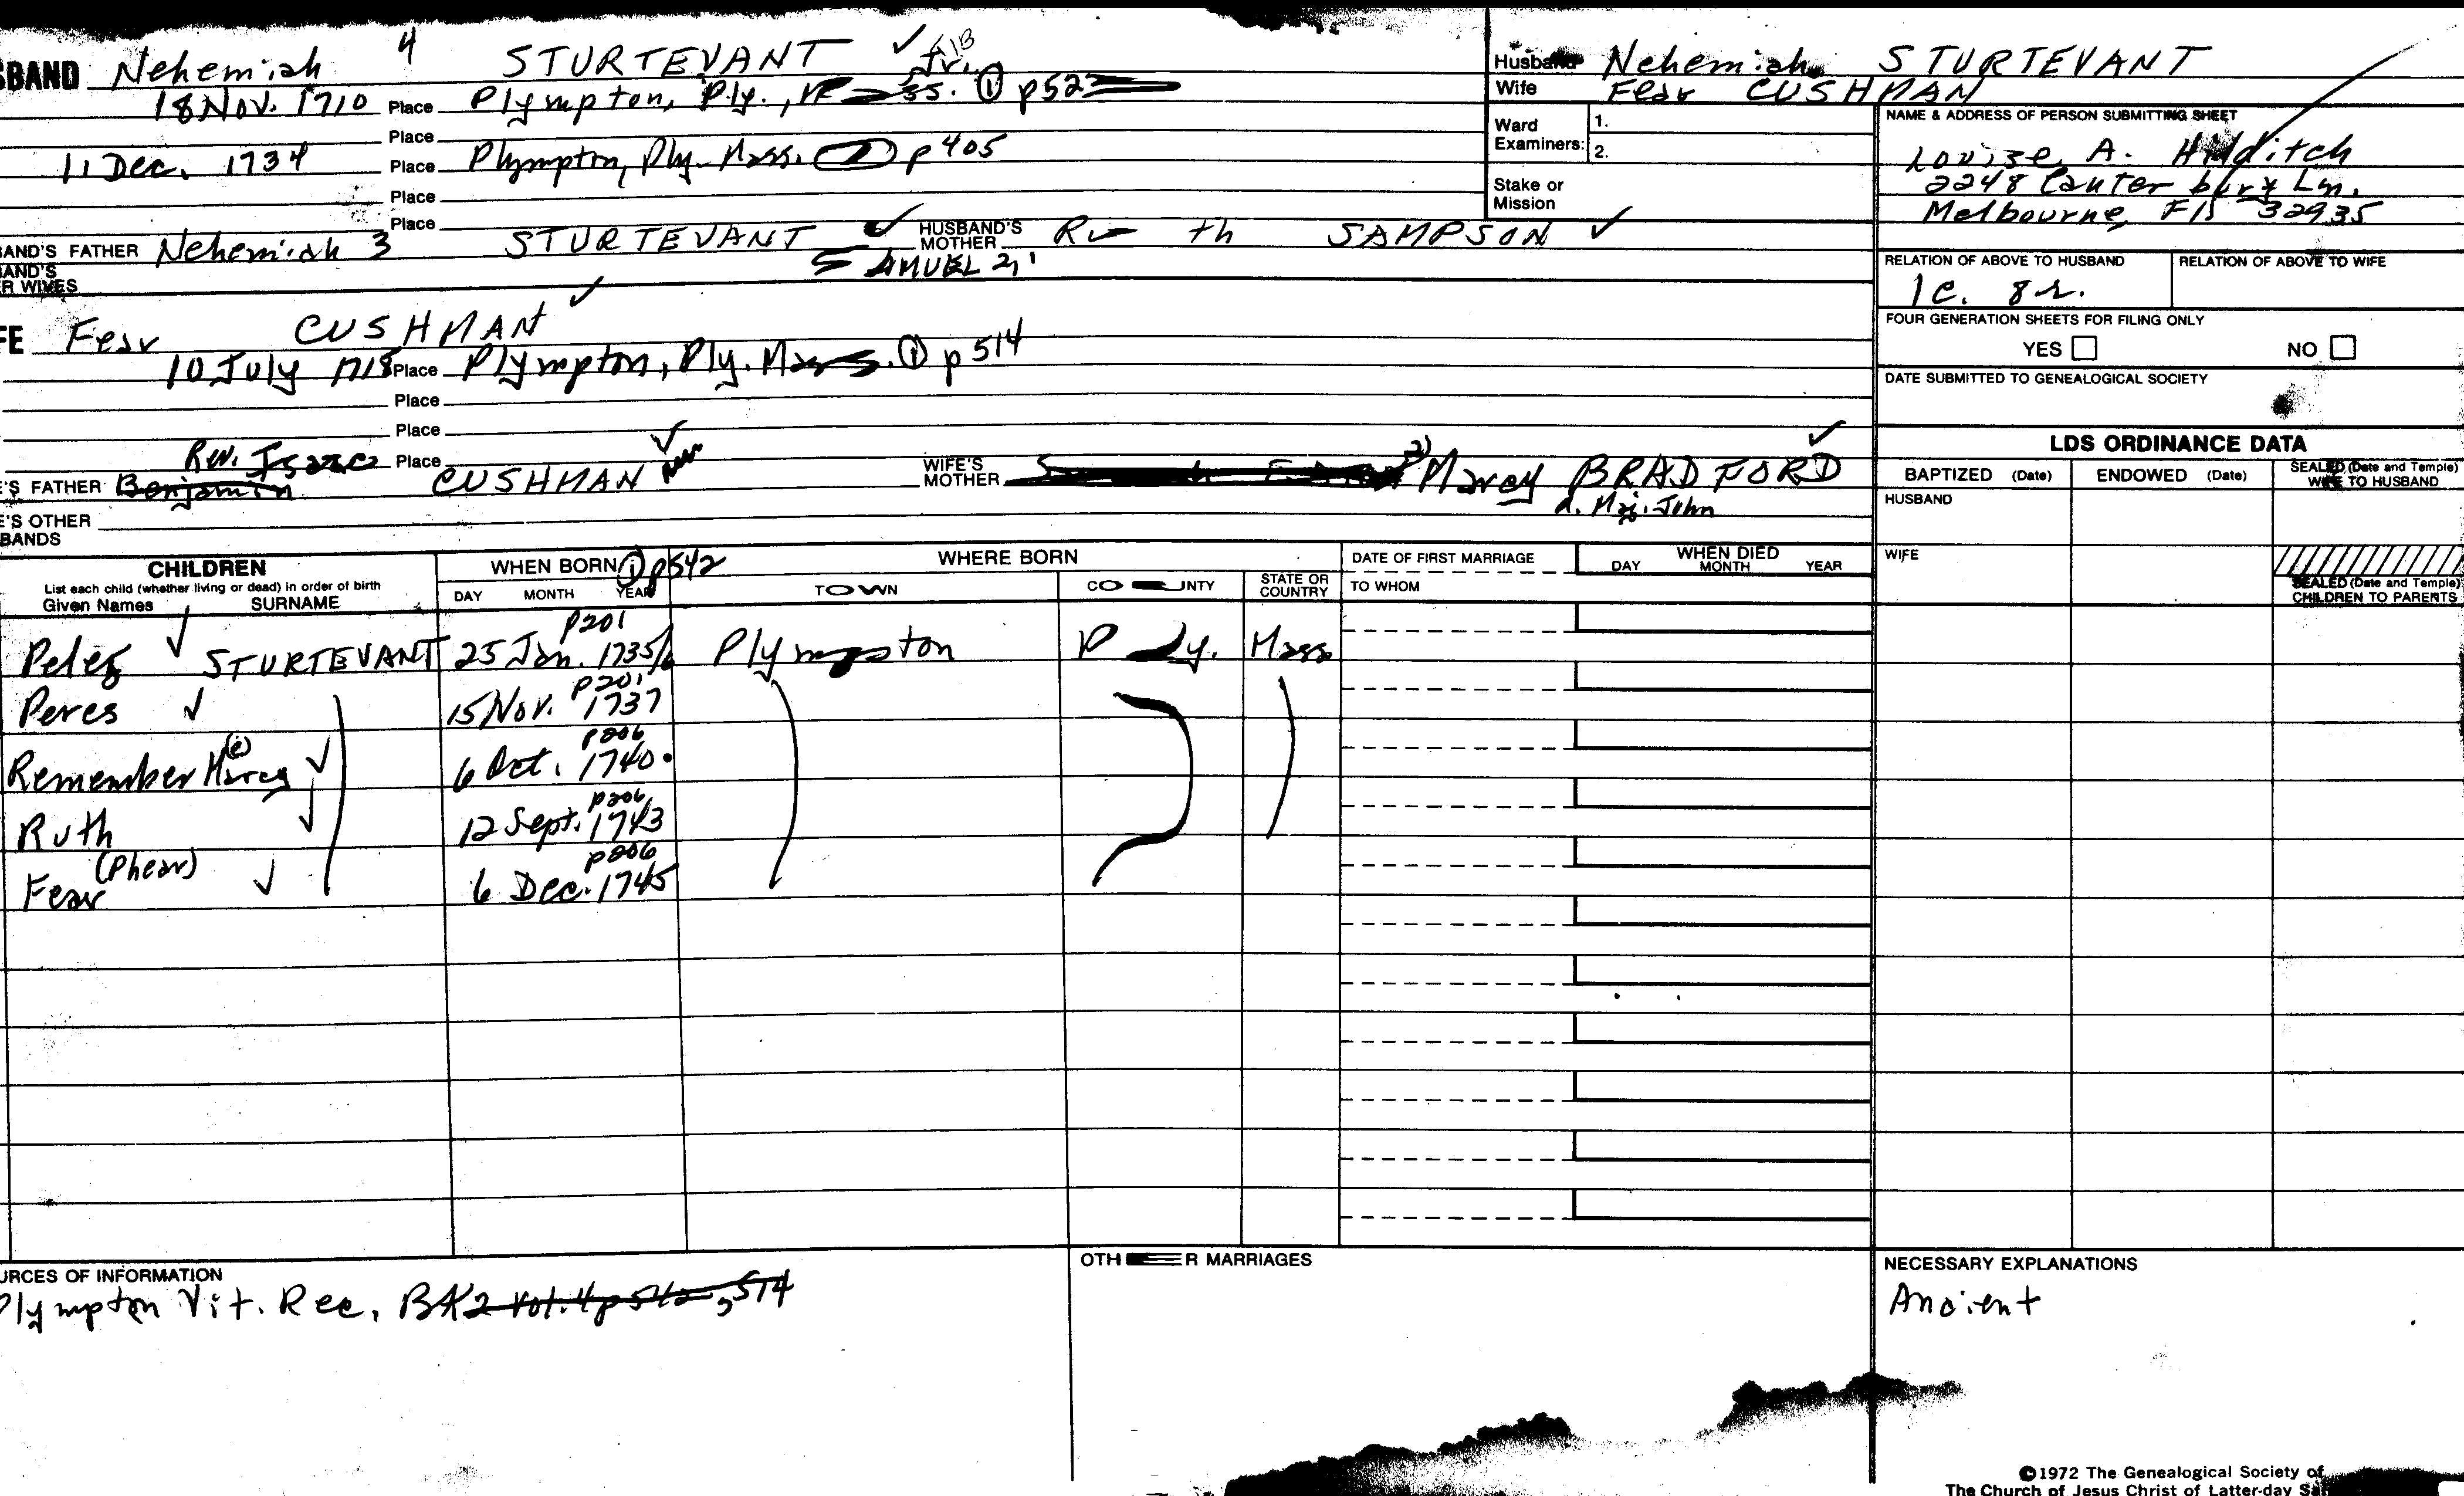 SBAND Nehemiah 4 STURTEVANT ✓ Jr.
18 Nov. 1710 Place Plympton, Ply., ss. ① p 52
Place
11 Dec. 1734 Place Plympton, Ply. Mass. p 405
Place
Place
BAND'S FATHER Nehemiah 3 STURTEVANT ✓ HUSBAND'S MOTHER Ru th SAMPSON ✓
SAMUEL 2, 1
BAND'S
R WIVES
FE Fear CUSHMAN ✓
10 July 1718 Place Plympton, Ply. Mass. ① p 514
Place
Place
Place
Rev. Isaac
'S FATHER Benjamin CUSHMAN ✓ WIFE'S MOTHER 2) Marcy BRADFORD ✓
d. Maj. John
E'S OTHER
BANDS
Husband Nehemiah STURTEVANT
Wife Fear CUSHMAN
Ward Examiners: 1.
2.
Stake or Mission
NAME & ADDRESS OF PERSON SUBMITTING SHEET
Louise A. Hilditch
2248 Canterbury Ln.
Melbourne, Fla 32935
RELATION OF ABOVE TO HUSBAND RELATION OF ABOVE TO WIFE
1c. 8r.
FOUR GENERATION SHEETS FOR FILING ONLY
YES NO
DATE SUBMITTED TO GENEALOGICAL SOCIETY
LDS ORDINANCE DATA
BAPTIZED (Date) ENDOWED (Date) SEALED (Date and Temple) WIFE TO HUSBAND
HUSBAND
WIFE
SEALED (Date and Temple) CHILDREN TO PARENTS
CHILDREN WHEN BORN ① p542 WHERE BORN DATE OF FIRST MARRIAGE WHEN DIED
List each child (whether living or dead) in order of birth
Given Names SURNAME DAY MONTH YEAR TOWN CO UNTY STATE OR COUNTRY TO WHOM DAY MONTH YEAR
p201
Peleg ✓ STURTEVANT 25 Jan. 1735/6 Plympton Ply. Mass
p201
Peres ✓ 15 Nov. 1737
(e) p206
Remember Marcy ✓ 6 Oct. 1740
p206
Ruth ✓ 12 Sept. 1743
(Phear) p206
Fear ✓ 6 Dec. 1745
URCES OF INFORMATION OTH R MARRIAGES NECESSARY EXPLANATIONS
Plympton Vit. Rec, BK2 Vol. 4 p 542, 514
Ancient
©1972 The Genealogical Society of
The Church of Jesus Christ of Latter-day